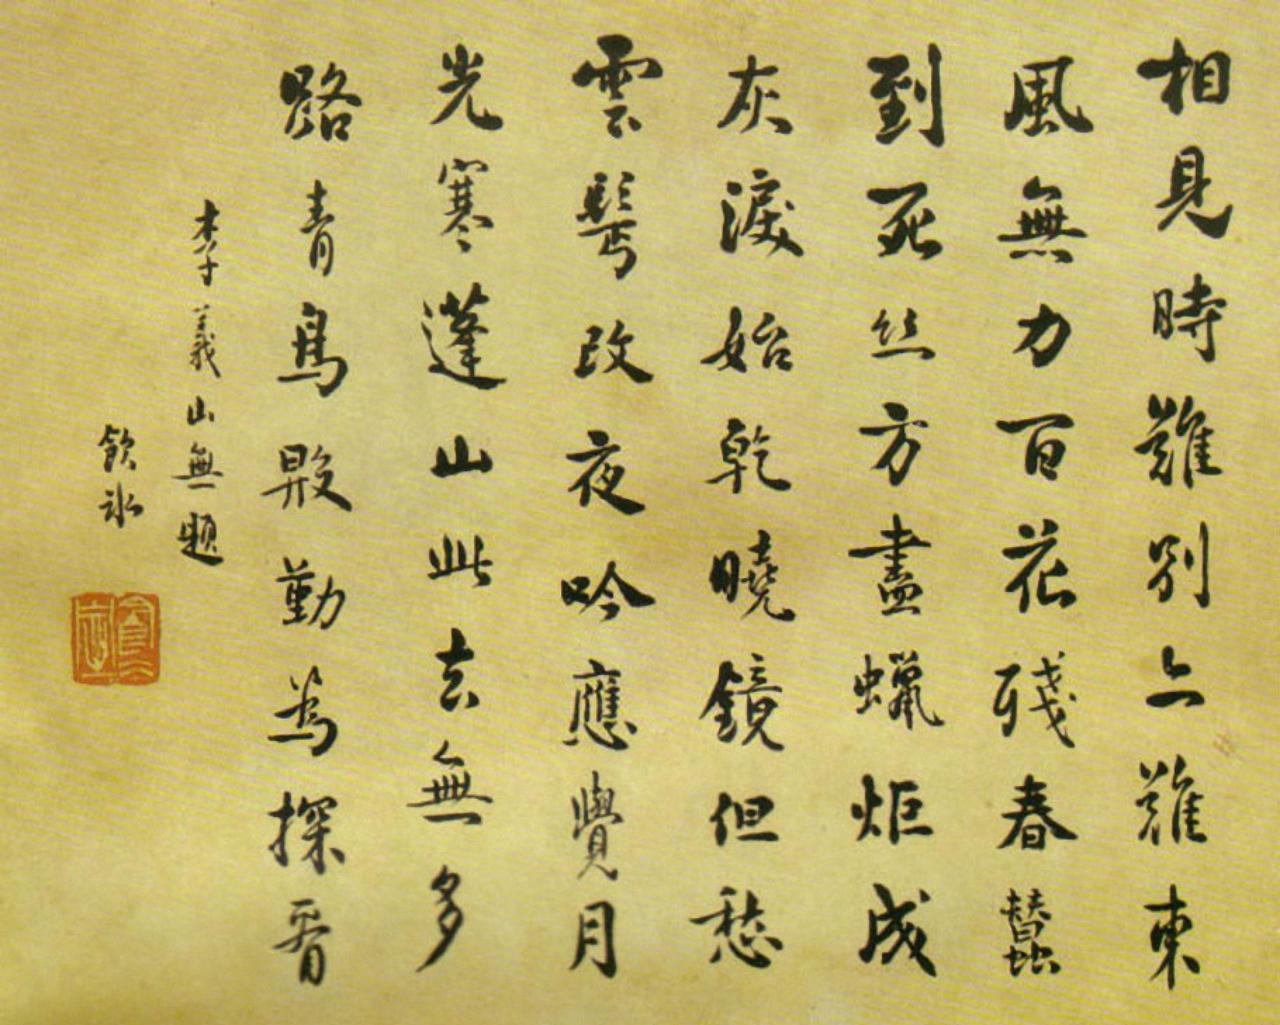 相見時難別亦難東
風無力百花殘春蠶
到死丝方盡蠟炬成
灰淚始乾曉鏡但愁
雲鬂改夜吟應覺月
光寒蓬山此去無多
路青鳥殷勤為探看
李義山無題
飲冰